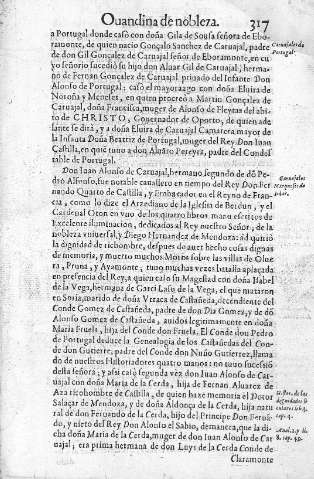 Ouandina de nobleza. 317
a Portugal donde casò con doña Gila de Sousa señora de Ebo-
ramonte, de quien nacio Gonçalo Sanchez de Caruajal, padre
de don Gil Gonçalez de Caruajal señor de Eboramonte, en cu
yo señorio sucedio su hijo don Aluar Gil de Caruajal; herma-
no de Fernan Gonçalez de Caruajal priuado del Infante Don
Alonso de Portugal; casò el mayorazgo con doña Eluira de
Noroña y Meneses, en quien procreò a Martin Gonçalez de
Caruajal, doña Francisca, muger de Alonso de Fleyras del abi-
to de CHRISTO, Gouernador de Oporto, de quien ade
lante se dirà, y a doña Eluira de Caruajal Camarera mayor de
la Infanta Doña Beatriz de Portugal, muger del Rey Don Iuan
Castilla, en quie tuuo a don Aluaro Pereyra, padre del Condes
table de Portugal.
Don Iuan Alonso de Caruajal, hermano segundo de dō Pe-
dro Alfonso, fue notable cauallero en tiempo del Rey Don Fer
nando Quarto de Castilla, y Embaxador en el Reyno de Fran-
cia, como lo dize el Arzediano de la Iglesia de Berdun, y el
Cardenal Oton en vno de los quatro libros manu escritos de
Excelente iluminacion, dedicados al Rey nuestro Señor, de la
nobleza vniuersal, y Diego Hernandez de Mendoza: adquiriò
la dignidad de richombre, despues de auer hecho cosas dignas
de memoria, y muerto muchos Moros sobre las villas de Oloe
ra, Pruna, y Ayamonte, tuuo muchas vezes batalla aplaçada
en presencia del Rey, a quien casò su Magestad con doña Isabel
de la Vega, hermana de Garci Lasso de la Vega, el que mataron
en Soria, marido de doña Vrraca de Castañeda, decendiente del
Conde Gomez de Castañeda, padre de don Dia Gomez, y de dō
Alonso Gomez de Castañeda, auidos legitimamente en doña
Maria Fruela, hija del Conde don Fruela. El Conde don Pedro
de Portugal deduce la Genealogia de los Castañedas del Con-
de don Gutierre, padre del Conde don Nuño Gutierrez, llama
do de nuestros Historiadores quatro manos: no tuuo sucession
desta señora; y assi casò segunda vez don Iuan Alonso de Car
uajal con doña Maria de la Cerda, hija de Fernan Aluarez de
Aza ricohombre de Castilla, de quien haze memoria el Dotor
Salaçar de Mendoza, y de doña Aldonça de la Cerda, hija natu
ral de don Fernando de la Cerda, hijo del Principe Don Fernā-
do, y nieto del Rey Don Alonso el Sabio, demanera, que la di-
cha doña Maria de la Cerda, muger de don Iuan Alonso de Car
uajal; era prima hermana de don Luys de la Cerda Conde de
Claramonte
Caruajales de
Portugal.